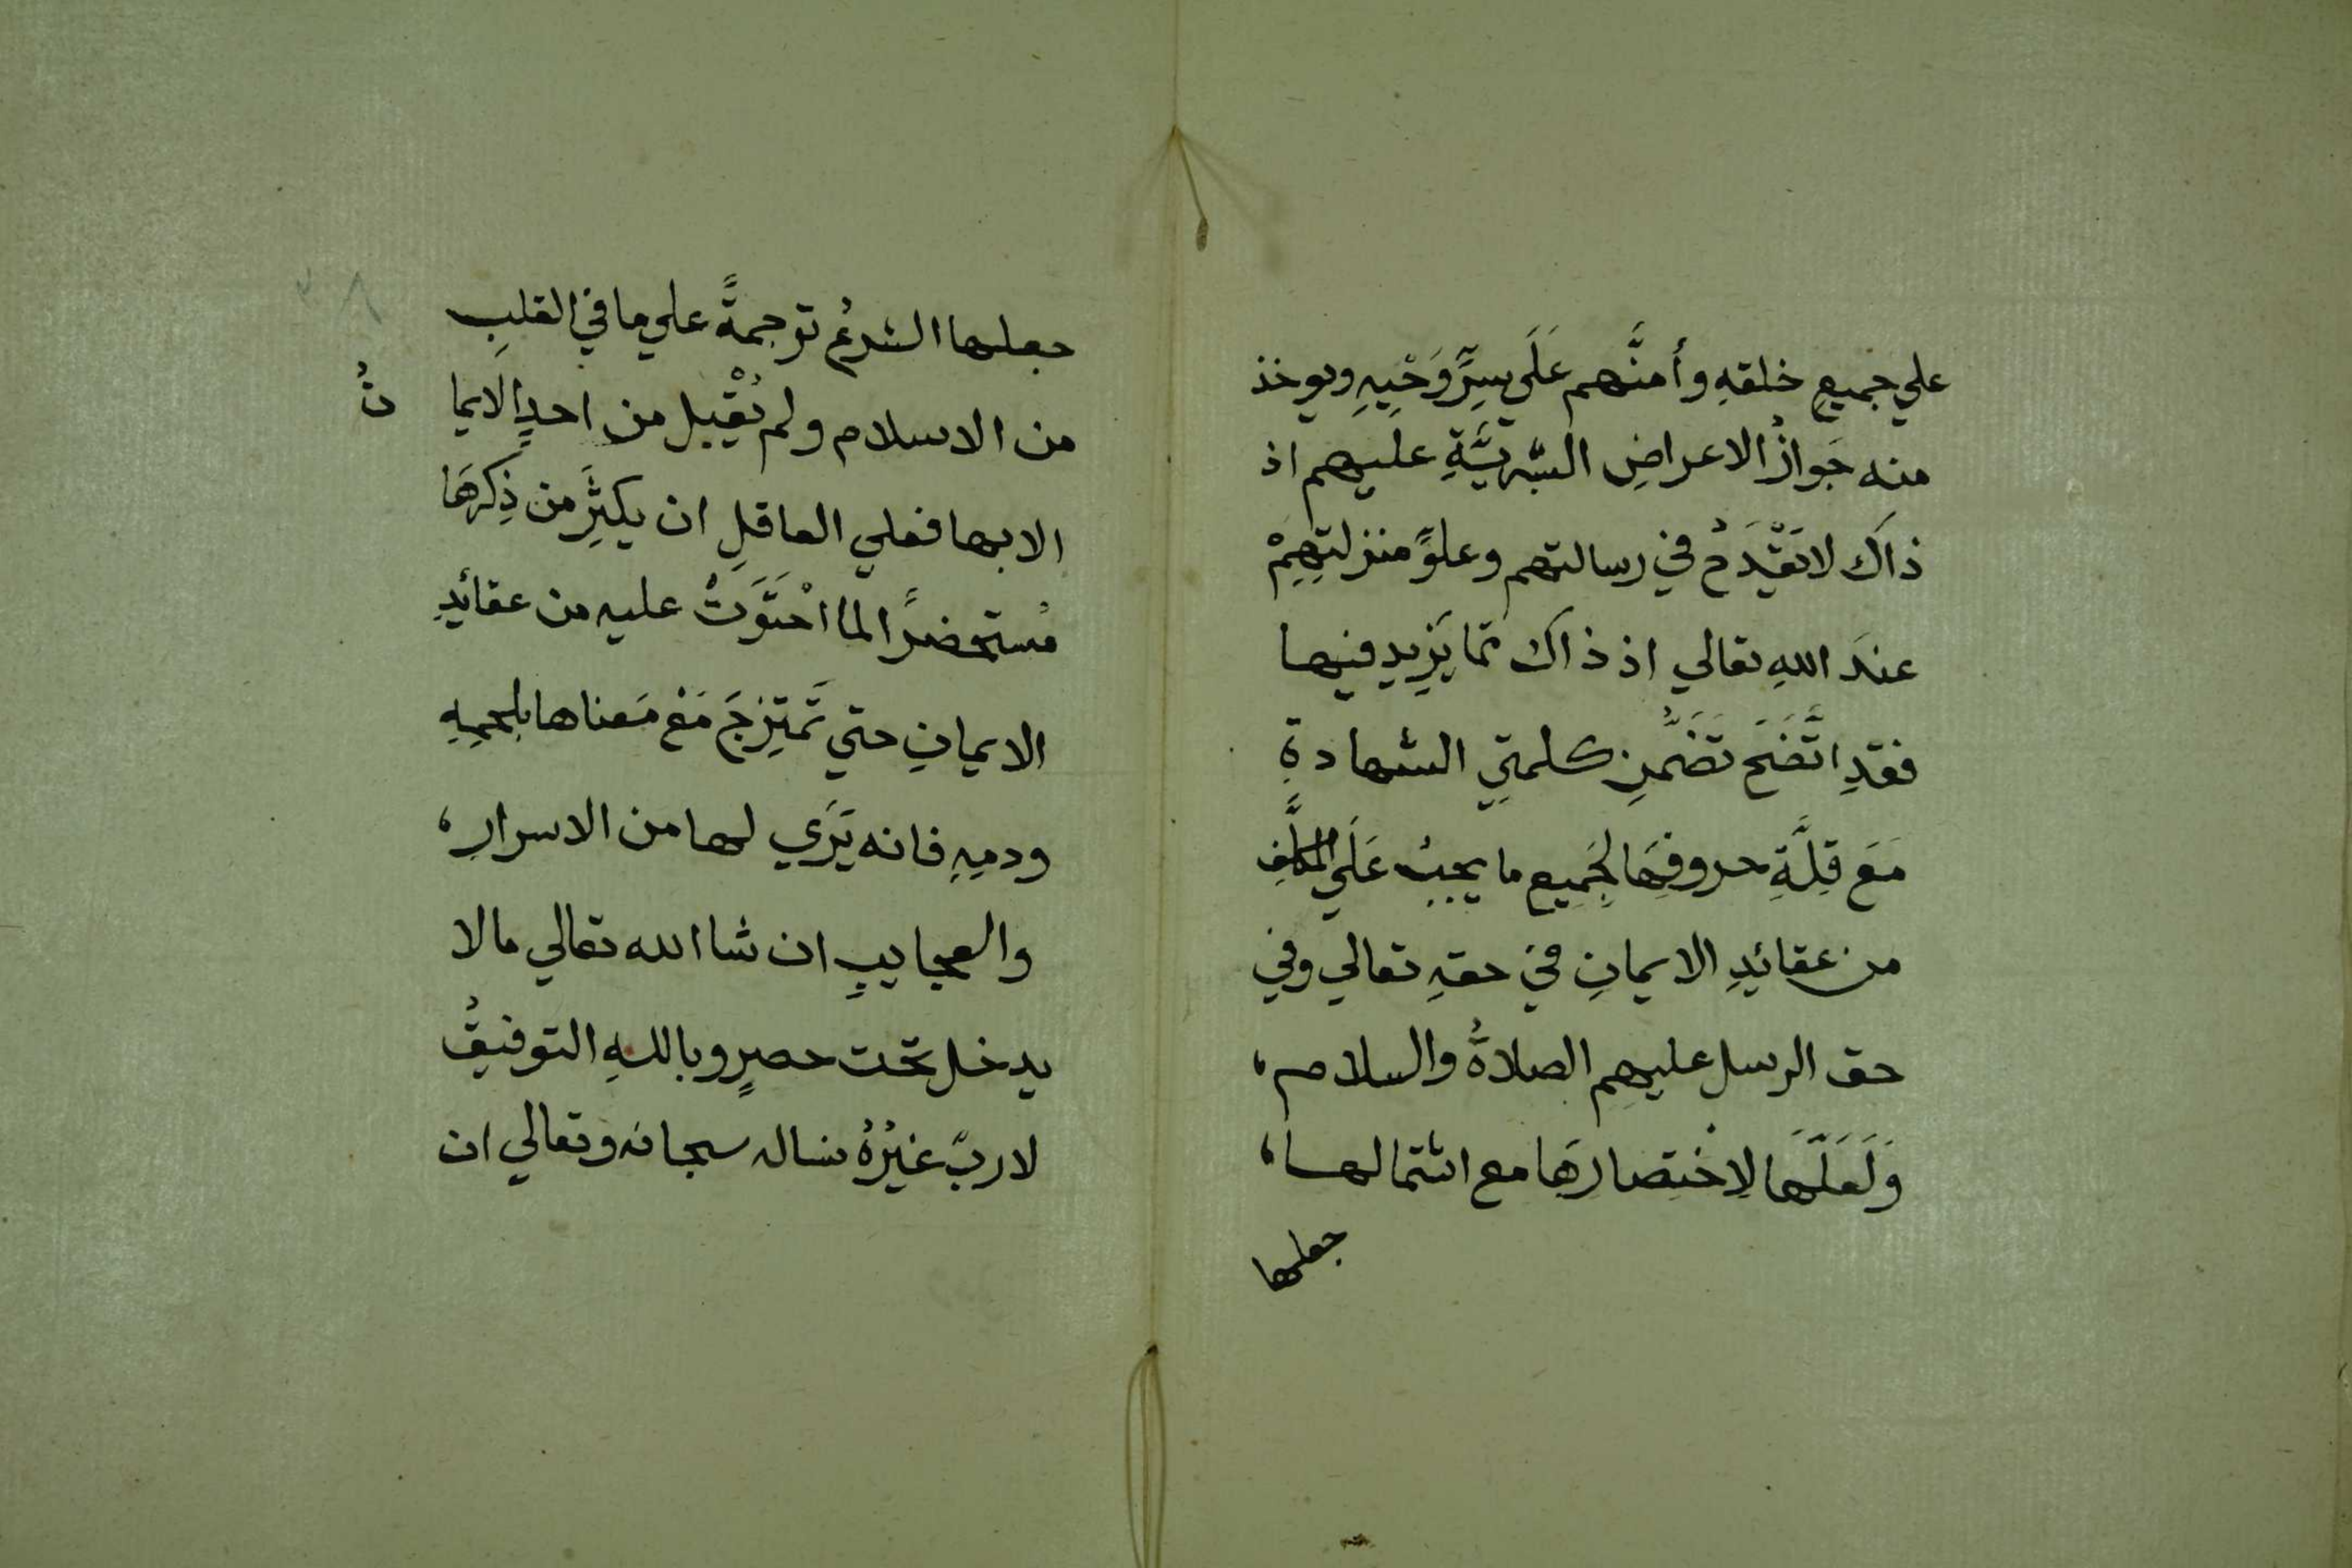 علي جميعِ خلقهِ وأمنَّهم عَلَي سِرِّ وَحْيِهِ ويوخذ
منه جَوازُ الاعراضِ البشريَّةِ عليهم اذ
ذاكَ لا تَقْدَحُ في رسالتهم وعلوِّ منزلتِهِمْ
عندَ اللهِ تعالي اذ ذاكَ مما يَزِيد فيها
فقدِ اتَّضَحَ تَضَمُّنِ كلمتيِ الشهادةِ
مَعَ قِلَّةِ حروفِهَا لِجَمِيعِ ما يجبُ عَلَي المكلَّفِ
من عقائدِ الايمانِ في حقهِ تعالي وفي
حق الرسل عليهم الصلاةُ والسلام،
وَلَعَلَّهَا لِاخْتِصارِهَا مع اشتمالها،
جعلها
جعلها الشرعُ ترجمةً علي ما في القلبِ
من الاسلام ولم يُقْبل من احدٍ الايمانُ
الا بها فعلي العاقلِ ان يكثِرَ من ذِكرِهَا
مُستحضرًا لما احْتَوَتْ عليه من عقائدِ
الايمانِ حتي تَمتَزِجَ مَعْ مَعناها بلحمِهِ
ودمِهِ فانه يَرَي لها من الاسرارِ،
والعجايبِ ان شا الله تعالي ما لا
يدخل تحت حصرٍ وباللهِ التوفيقُ
لا ربَّ غيرُهُ نساله سبحانه وتعالي ان